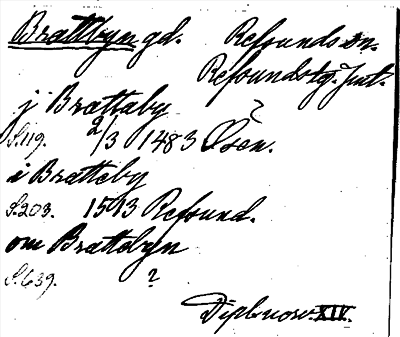 Brattbyn gd. Refsunds sn.
Refsunds tg. Jmt.
j Brættaby
S. 119. 2/3 1483 Øsen.
i Bratteby
S. 203. 1513 Refsund.
om Brattebyn
S. 639. ?
Dipl. norv. XIV.